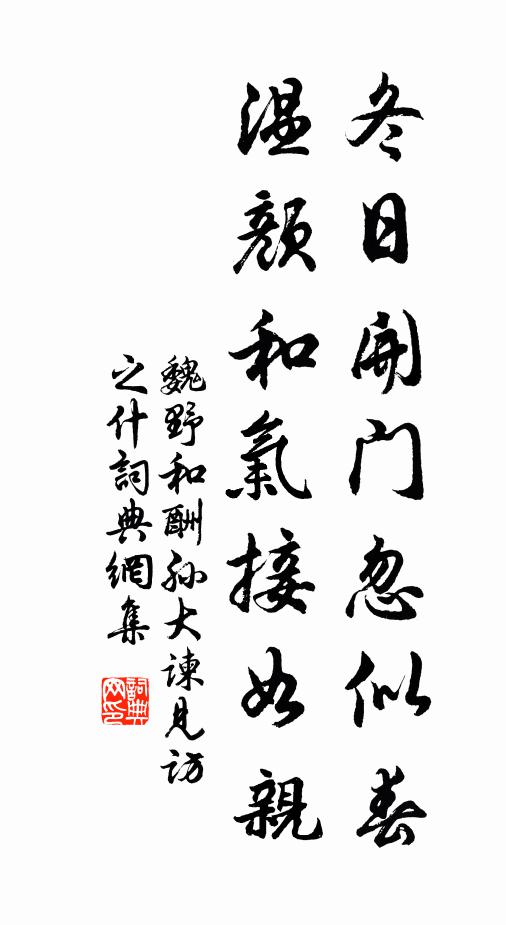 冬日開門忽似春
温顏和氣接如親
魏野和酬孙大諫見訪
之什詞典網集
詞典
网印